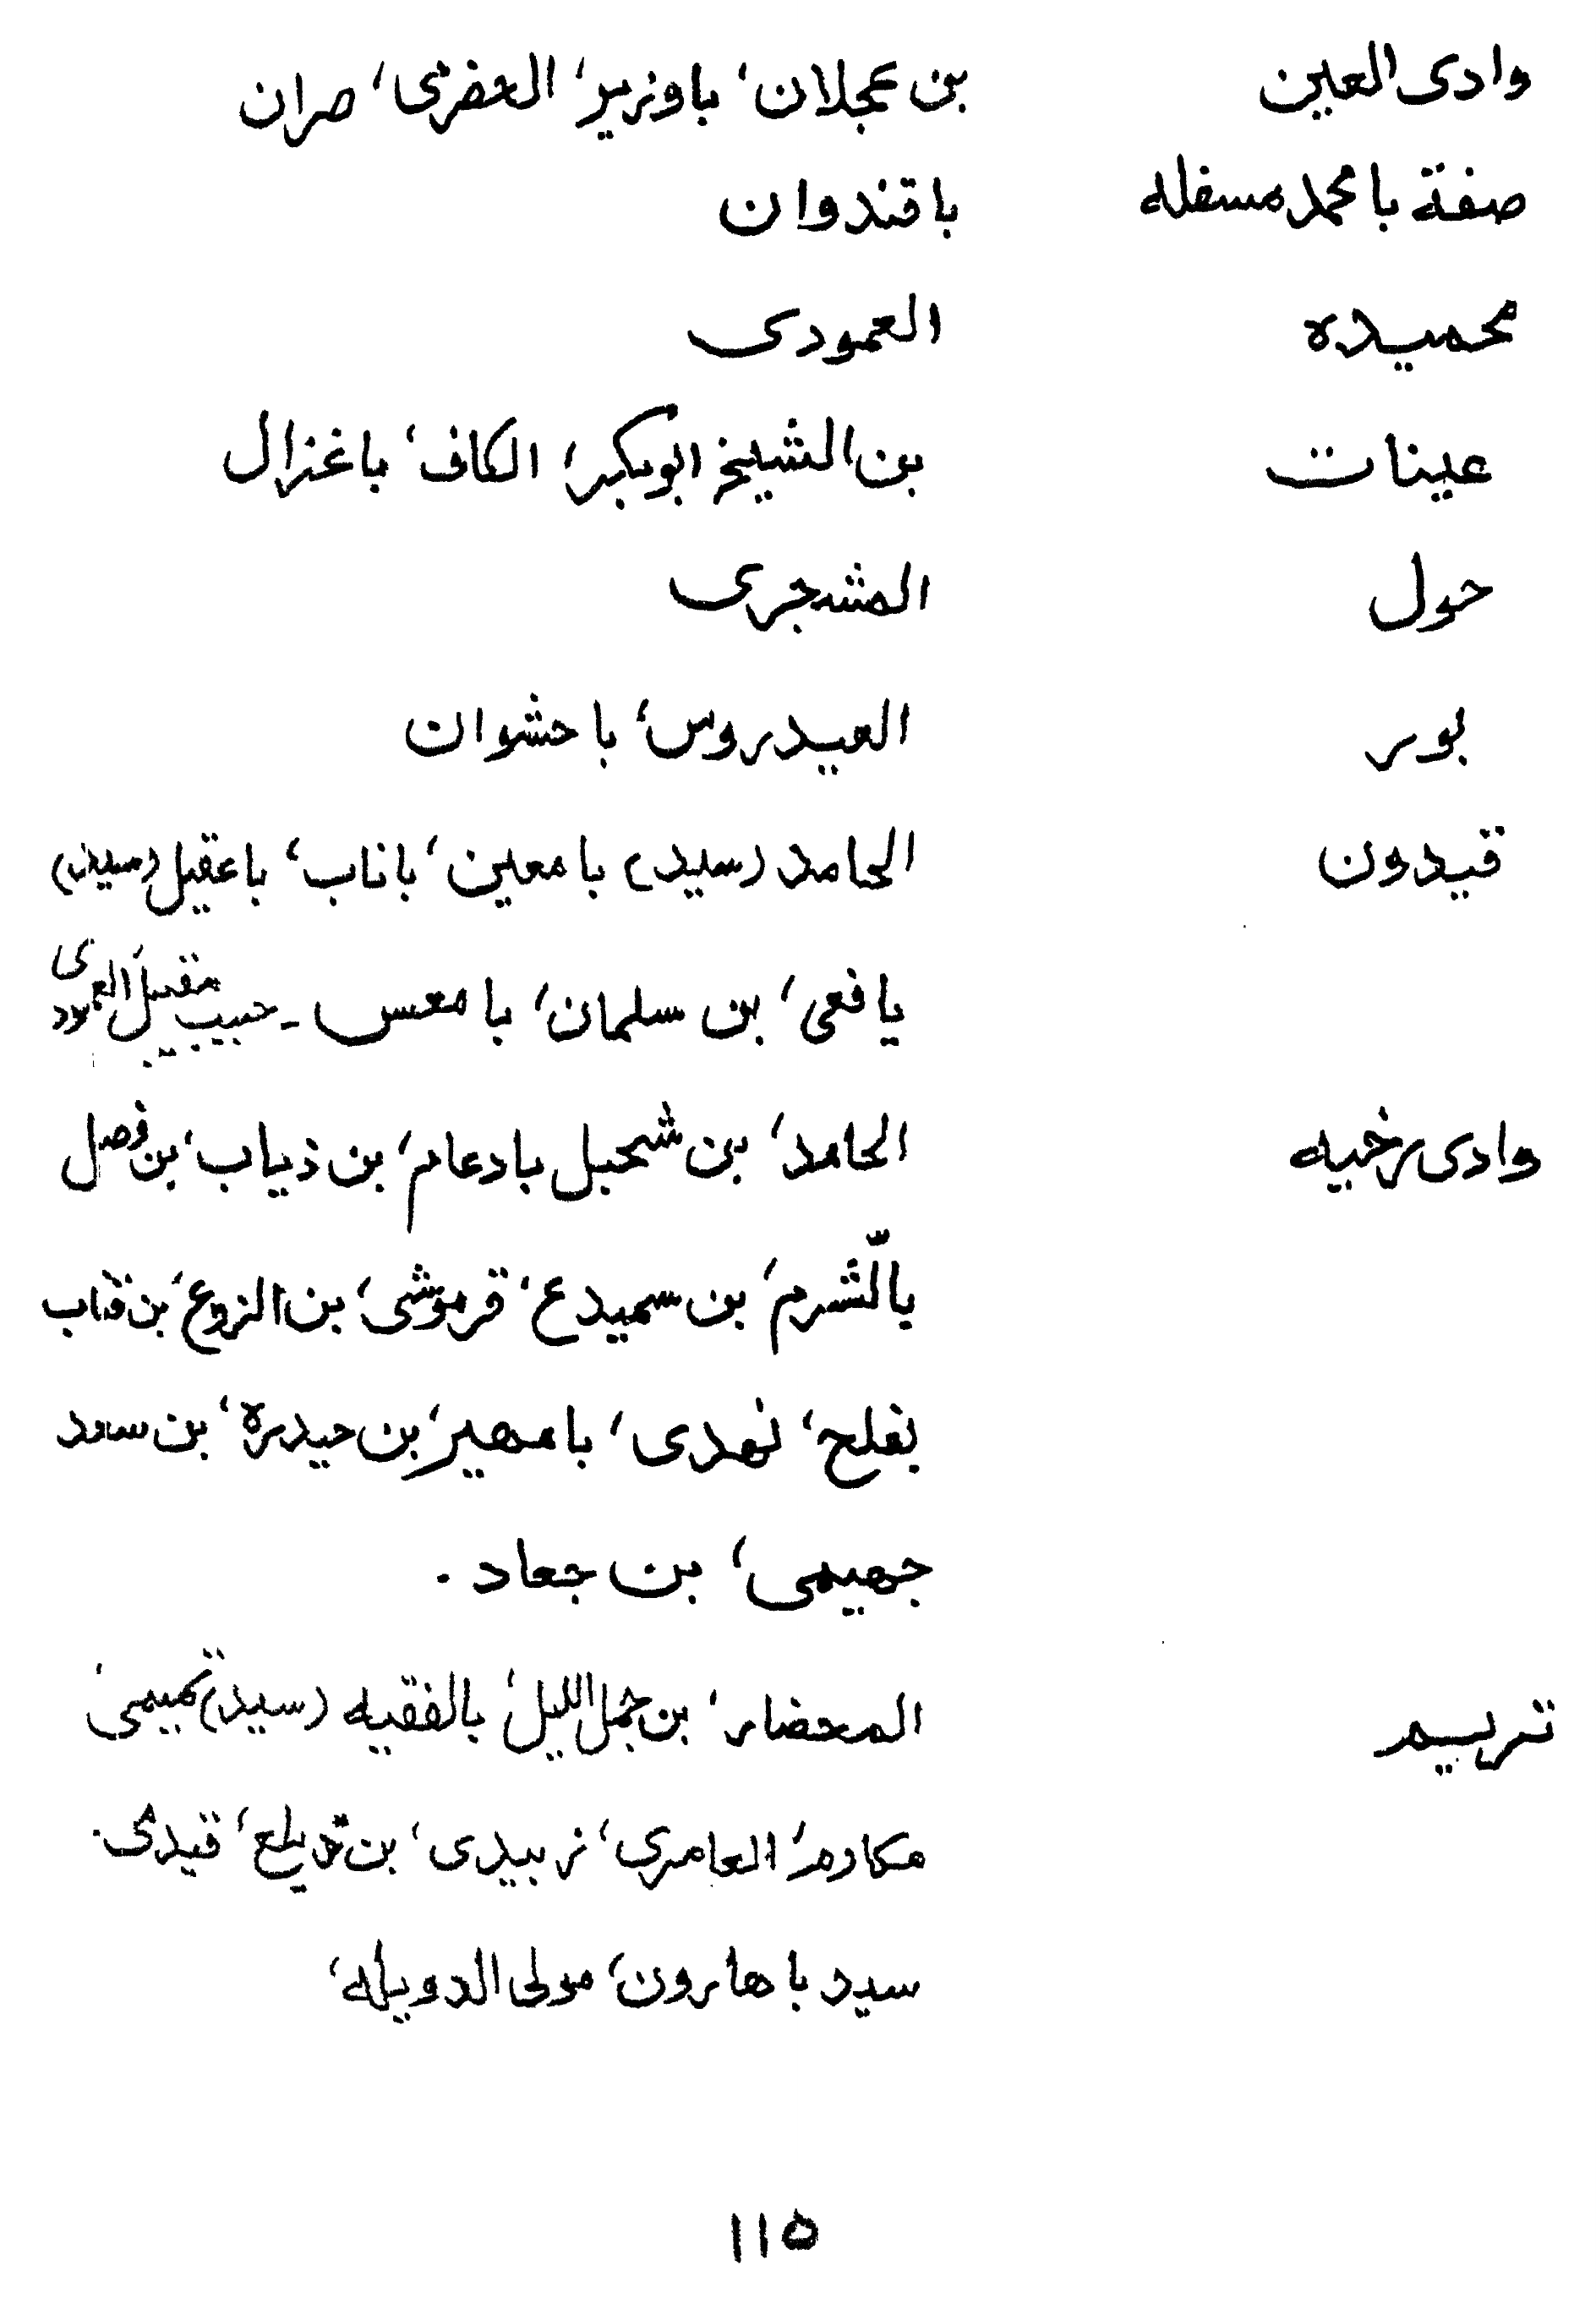 وادی العین بن عجلان، باوزیر، العفری، صران
صفة با محمد مسفله باقندوان
محمیده العمودی
عینات بن الشیخ ابوبکر، الکاف، باغزال
حول المشجری
بور العیدروس، باحشوان
قیدون الحامد (سید) بامعین، باناب، باعقیل (سید)
یافعی، بن سلمان، بامعس - حبیب مقبیل العمودی
وادی رخیه الحامد، بن شحبل بادعام، بن ذیاب، بن فصل
بالّشرم، بن سمیدع، قرموشی، بن الزوع، بن قتاب
بفلح، نهدی، بامهیر، بن حیدرة، بن سعد
جهیمی، بن جعاد.
تریم المحضار، بن جمل اللیل، بالفقیه (سید) تمیمی،
مکارم، العامری، زبیدی، بن قدیلع، قیدی.
سید باهارون، مولی الدویله،
۱۱۵